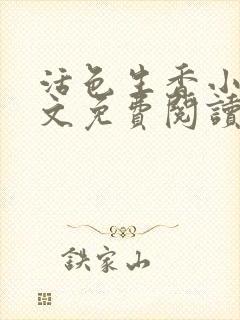 活色生香小
文免費閱讀
鉄家山